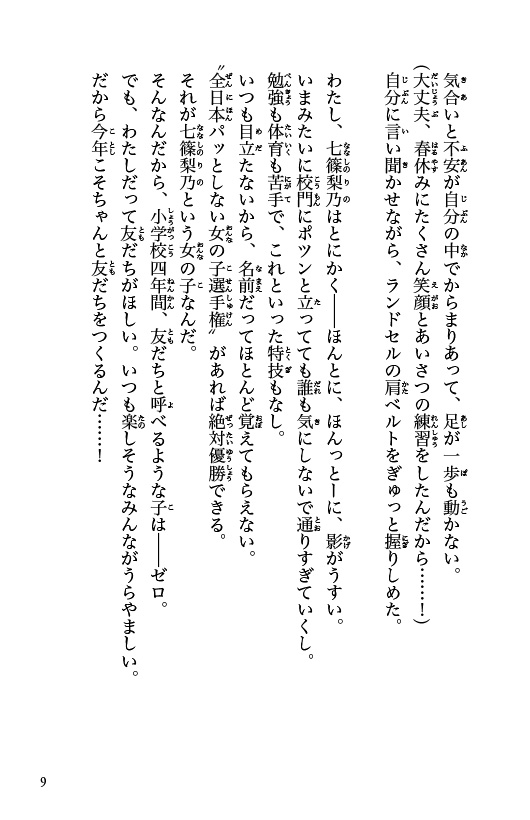 気合いと不安が自分の中でからまりあって、足が一歩も動かない。
（大丈夫、春休みにたくさん笑顔とあいさつの練習をしたんだから……！）
自分に言い聞かせながら、ランドセルの肩ベルトをぎゅっと握りしめた。
わたし、七篠梨乃はとにかく――ほんとに、ほんっとーに、影がうすい。
いまみたいに校門にポツンと立ってても誰も気にしないで通りすぎていくし。
勉強も体育も苦手で、これといった特技もなし。
いつも目立たないから、名前だってほとんど覚えてもらえない。
〝全日本パッとしない女の子選手権〟があれば絶対優勝できる。
それが七篠梨乃という女の子なんだ。
そんなんだから、小学校四年間、友だちと呼べるような子は――ゼロ。
でも、わたしだって友だちがほしい。いつも楽しそうなみんながうらやましい。
だから今年こそちゃんと友だちをつくるんだ……！
9